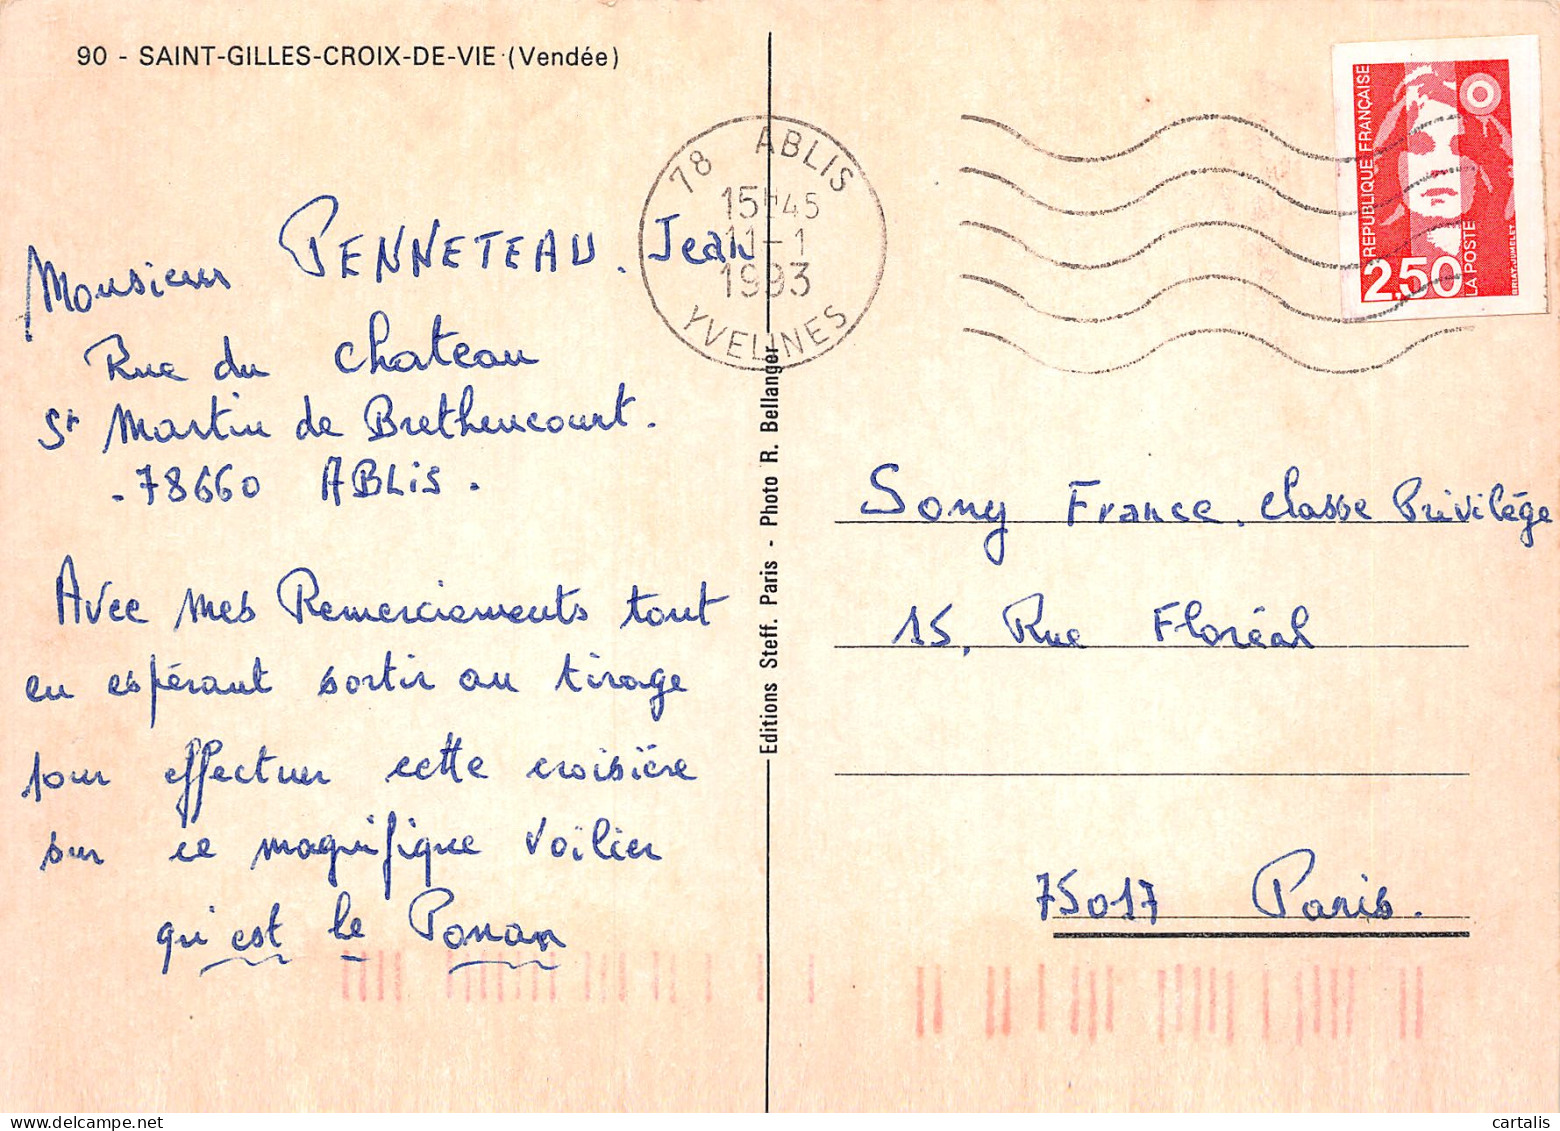 90 - SAINT-GILLES-CROIX-DE-VIE (Vendée)
Monsieur PENNETEAU. Jean
Rue du Chateau
St Martin de Brethencourt.
- 78660 ABLIS.
Avec mes Remerciements tout
en espérant sortir au tirage
pour effectuer cette croisière
sur ce magnifique voilier
qui est le Ponan
Editions Steff. Paris - Photo R. Bellanger
78 ABLIS
15H45
11-1
1993
YVELINES
REPUBLIQUE FRANÇAISE
2,50
LA POSTE
BRIAT-JUMELET
Sony France. Classe Privilége
15, Rue Floréal
75017 Paris.
cartalis
www.delcampe.net